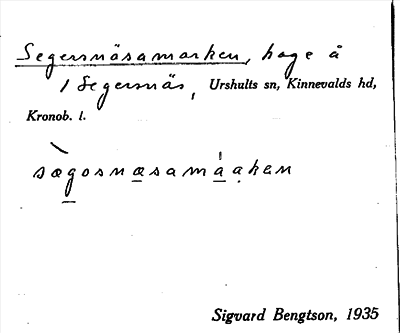 Segersnäsamarken, hage å
1 Segersnäs, Urshults sn, Kinnevalds hd,
Kronob. l.
sægosnæsamáaken
Sigvard Bengtson, 1935